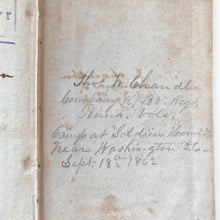 Thos. K. Chandler
Company K. 138th Regt
Penna. Vols.
Camp at Soldiers Home
near Washington D.C.
Sept. 18th 1862